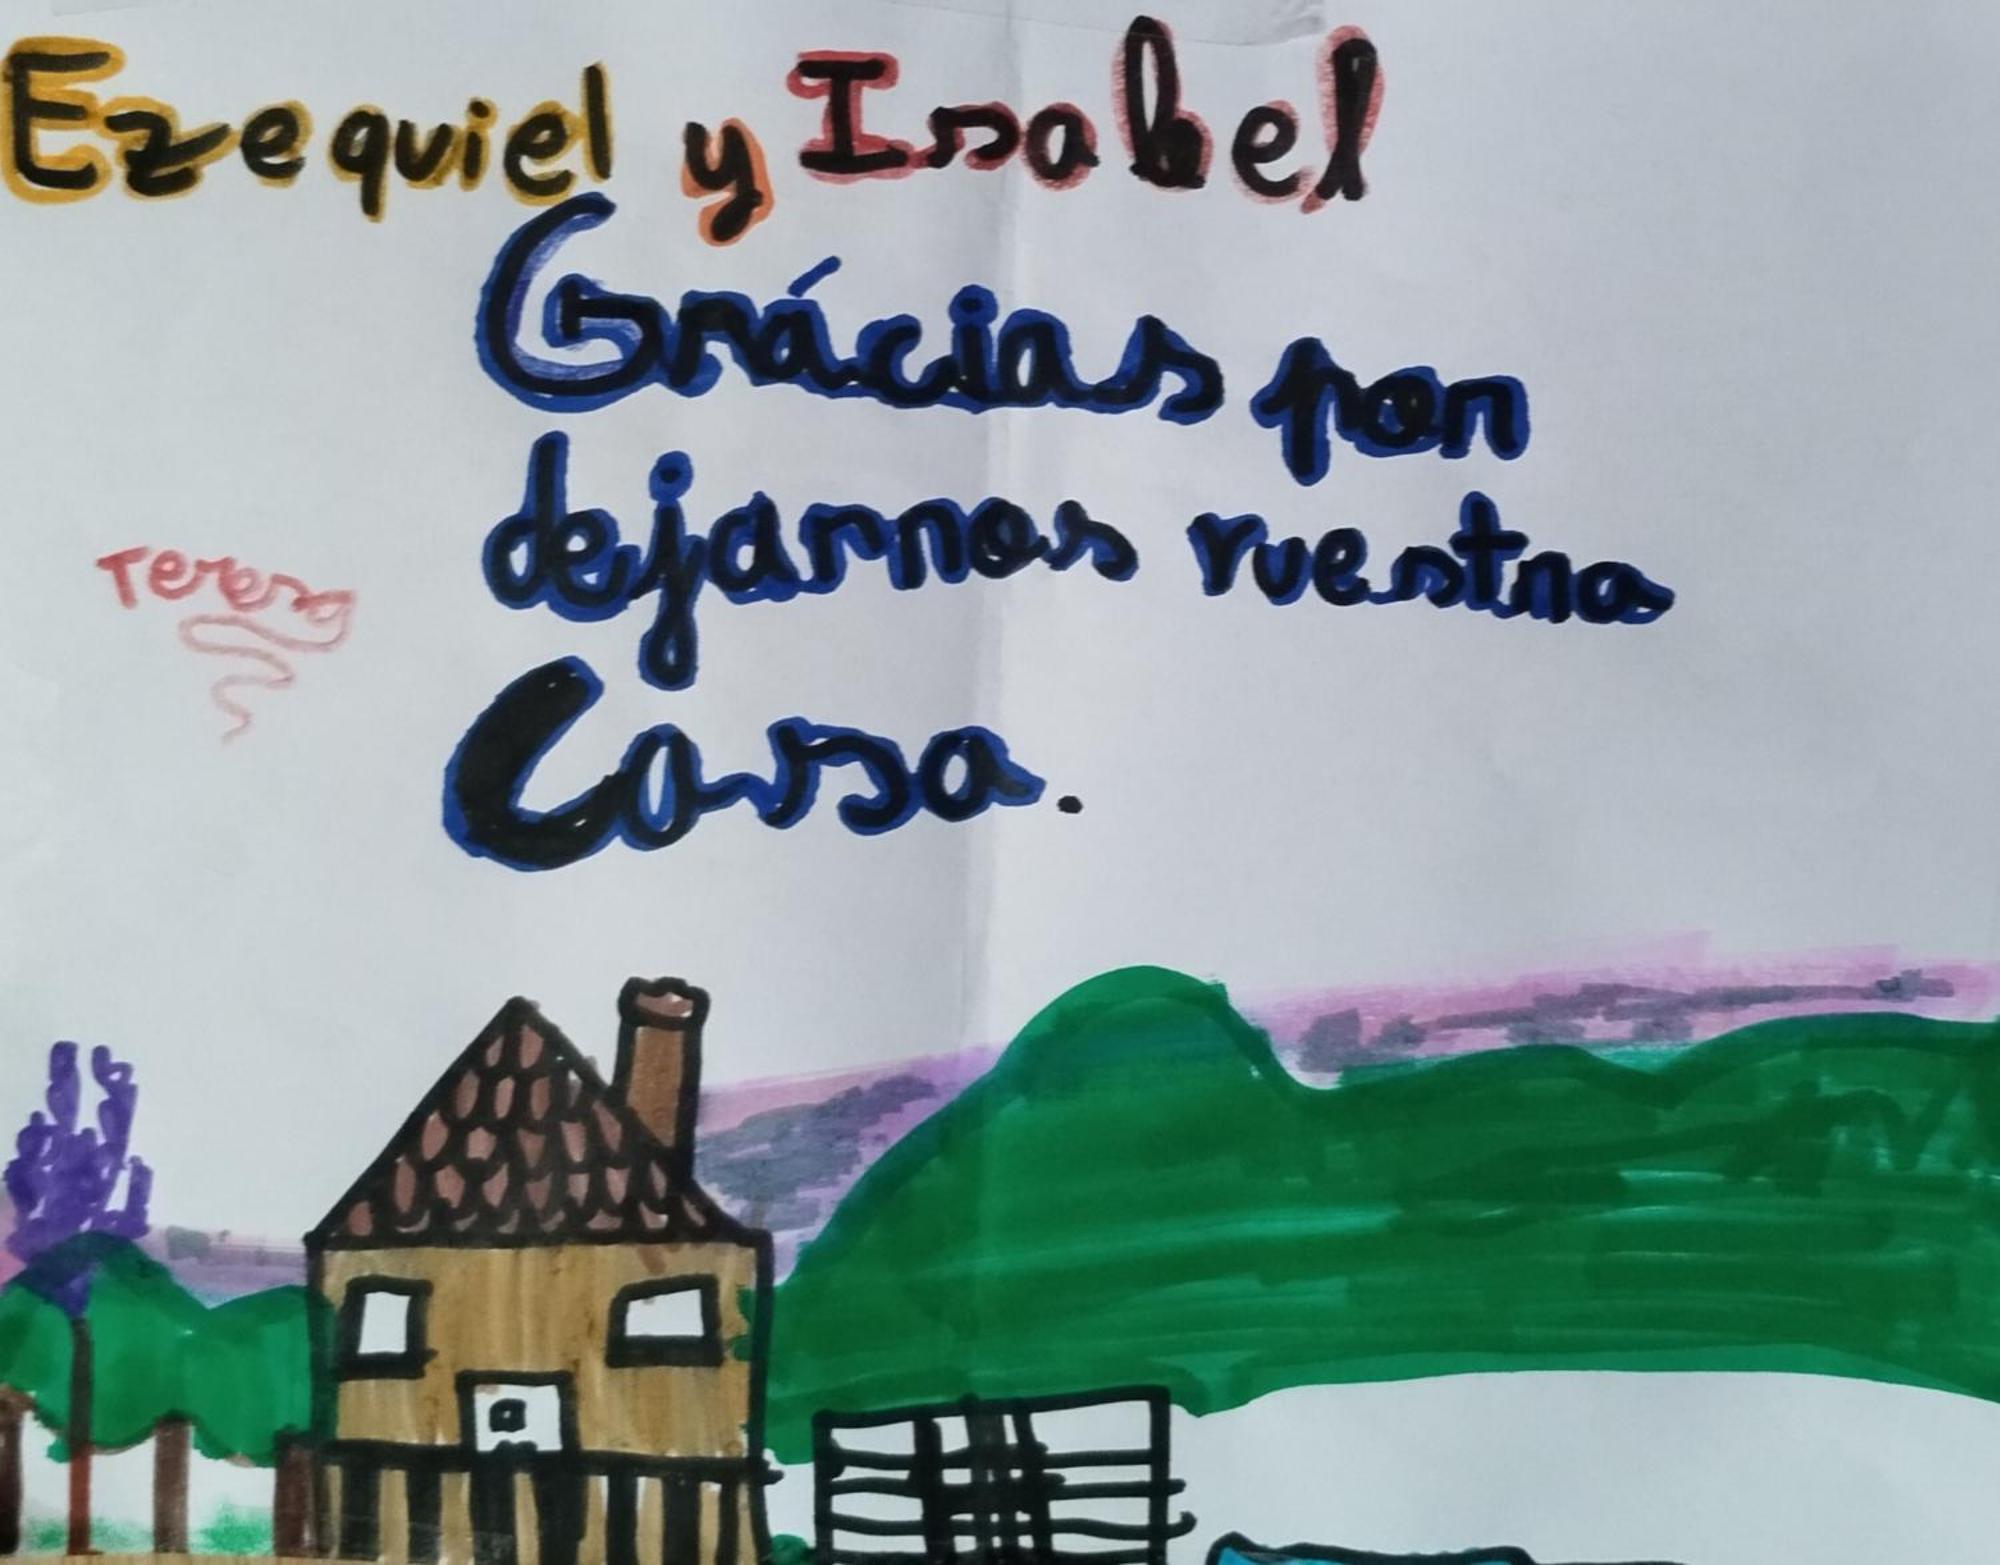 Ezequiel y Isabel
Grácias por
dejarnos vuestra
Teresa
Casa.